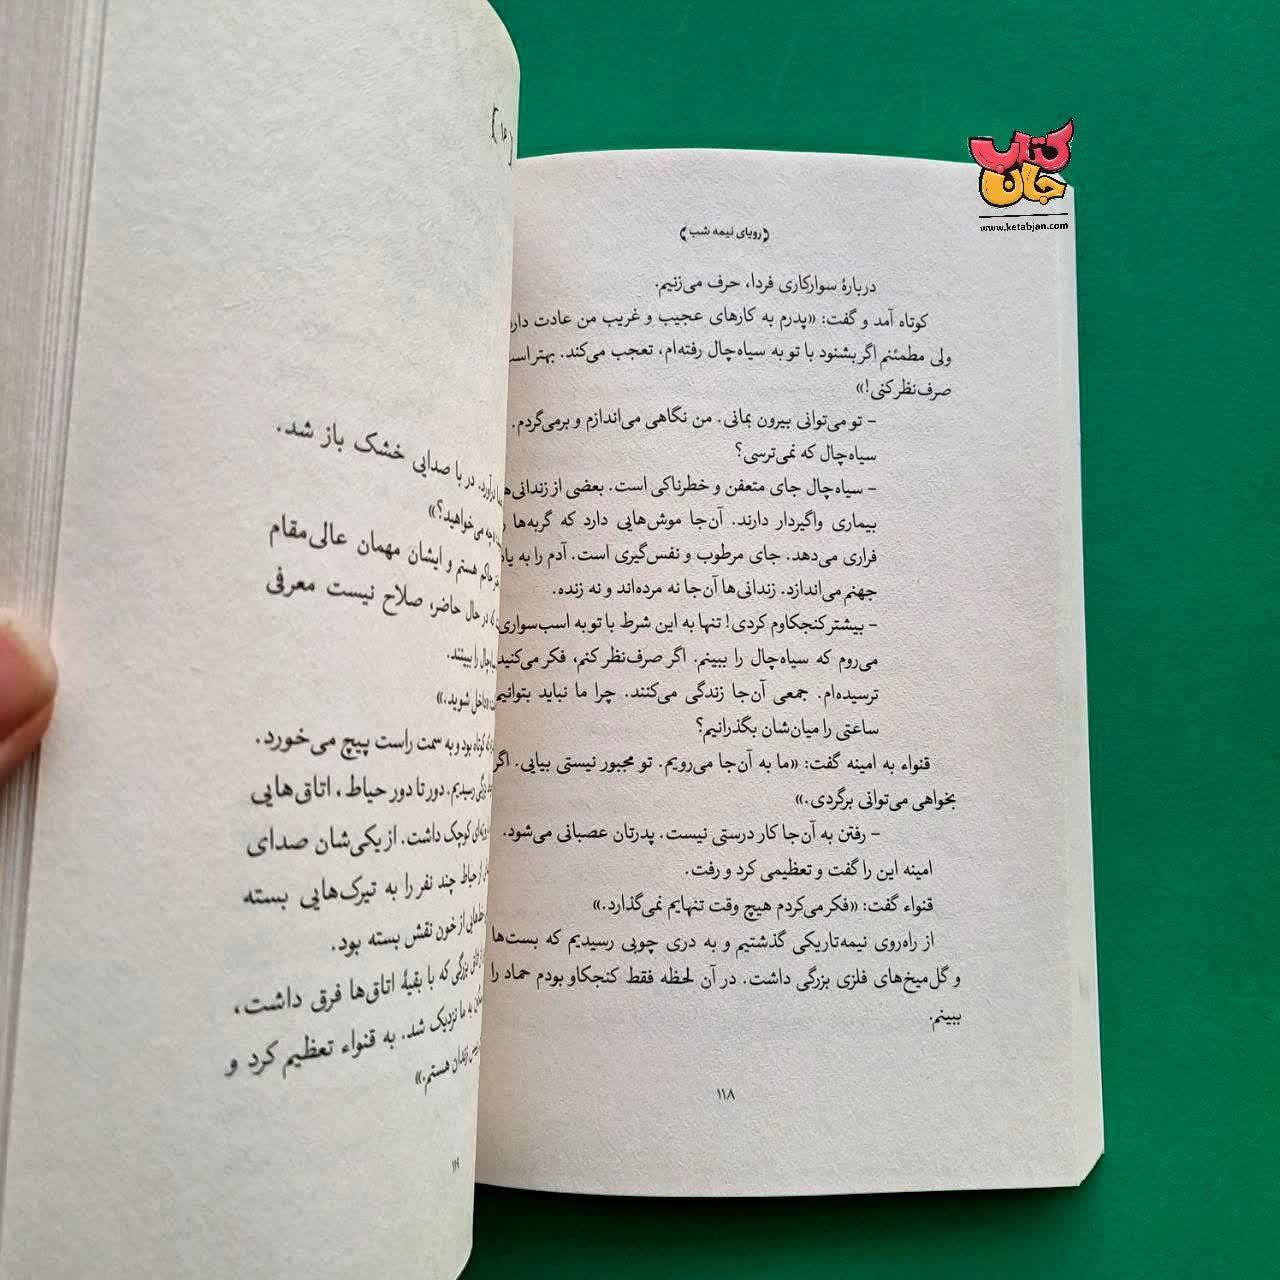 کتاب
جان
www.ketabjan.com
رویای نیمه شب
دربارهٔ سوارکاری فردا، حرف می‌زنیم.
کوتاه آمد و گفت: «پدرم به کارهای عجیب و غریب من عادت دارد
ولی مطمئنم اگر بشنود با تو به سیاه‌چال رفته‌ام، تعجب می‌کند. بهتر است
صرف‌نظر کنی!»
– تو می‌توانی بیرون بمانی. من نگاهی می‌اندازم و برمی‌گردم.
سیاه‌چال که نمی‌ترسی؟
– سیاه‌چال جای متعفن و خطرناکی است. بعضی از زندانی‌ها
بیماری واگیردار دارند. آن‌جا موش‌هایی دارد که گربه‌ها را
فراری می‌دهد. جای مرطوب و نفس‌گیری است. آدم را به یاد
جهنم می‌اندازد. زندانی‌ها آن‌جا نه مرده‌اند و نه زنده.
– بیشتر کنجکاوم کردی! تنها به این شرط با تو به اسب‌سواری
می‌روم که سیاه‌چال را ببینم. اگر صرف‌نظر کنم، فکر می‌کنید
ترسیده‌ام. جمعی آن‌جا زندگی می‌کنند. چرا ما نباید بتوانیم
ساعتی را میان‌شان بگذرانیم؟
قنواء به امینه گفت: «ما به آن‌جا می‌رویم. تو مجبور نیستی بیایی. اگر
بخواهی می‌توانی برگردی.»
– رفتن به آن‌جا کار درستی نیست. پدرتان عصبانی می‌شود.
امینه این را گفت و تعظیمی کرد و رفت.
قنواء گفت: «فکر می‌کردم هیچ وقت تنهایم نمی‌گذارد.»
از راه‌روی نیمه‌تاریکی گذشتیم و به دری چوبی رسیدیم که بست‌ها
و گل‌میخ‌های فلزی بزرگی داشت. در آن لحظه فقط کنجکاو بودم حماد را
ببینم.
۱۱۸
درآورد. در با صدایی خشک باز شد.
چه می‌خواهید؟»
حاکم هستم و ایشان مهمان عالی‌مقام
که در حال حاضر، صلاح نیست معرفی
را ببینند.
«داخل شوید.»
کوتاه بود و به سمت راست پیچ می‌خورد.
بزرگی رسیدیم. دور تا دور حیاط، اتاق‌هایی
کوچک داشت. از یکی‌شان صدای
از حیاط چند نفر را به تیرک‌هایی بسته
از خون نقش بسته بود.
بزرگی که با بقیهٔ اتاق‌ها فرق داشت،
به ما نزدیک شد. به قنواء تعظیم کرد و
زندان هستم.»
۱۱۹